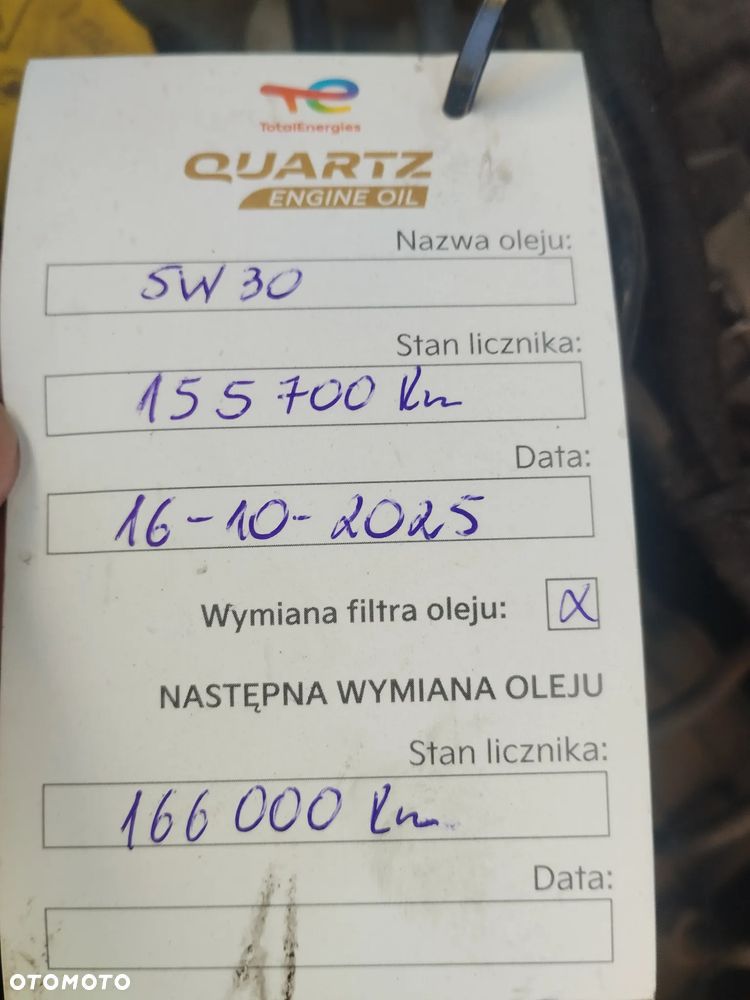 TotalEnergies
QUARTZ
ENGINE OIL
Nazwa oleju:
5W30
Stan licznika:
155 700 km
Data:
16-10-2025
Wymiana filtra oleju: X
NASTĘPNA WYMIANA OLEJU
Stan licznika:
166 000 km
Data:
OTOMOTO